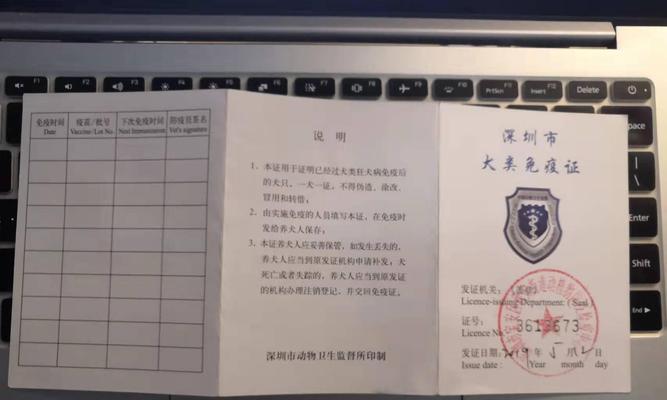 F1
F2
F3
F4
F5
F6
F7
F8
F9
F10
PrtScn
F11
Insert
F12
Delete
免疫时间 疫苗/批号 下次免疫时间 防疫员签名
Date Vaccine/Lot No. Next Immunization Vet's signature
说 明
1、本证用于证明已经过犬类狂犬病免疫后
的犬只，一犬一证，不得伪造、涂改、
冒用和转借；
2、由实施免疫的人员填写本证，在免疫时
发给养犬人保存；
3、本证养犬人应妥善保管，如发生丢失的，
养犬人应当到原发证机构申请补发；犬
死亡或者失踪的，养犬人应当到原发证
的机构办理注销登记，并交回免疫证。
深圳市动物卫生监督所印制
深圳市
犬类免疫证
发证机关：
Licence-issuing Department: ( Seal )
证号：
Licence No.
发证日期：2019年5月2日
Issue date : Year month day
Enter
Shift
End